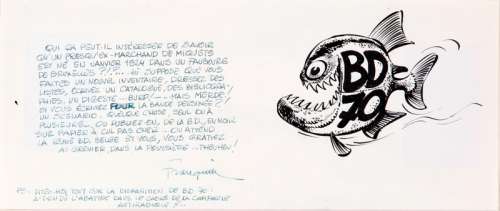 QUI ÇA PEUT-IL INTÉRESSER DE SAVOIR
QU'UN PRESQU'EX-MARCHAND DE MIQUETS
EST NÉ EN JANVIER 1924 DANS UN FAUBOURG
DE BRUXELLES?!?... SI SUPPOSE QUE VOUS
FAITES UN NOUVEL INVENTAIRE, DRESSEZ DES
LISTES, ÉCRIVEZ UN CATALOGUE, DES BIBLIOGRA-
PHIES, UN DIGESTE - BURP! - ... MAIS MERDE!
SI VOUS ÉCRIVEZ POUR LA BANDE DESSINÉE?!
UN SCENARIO, QUELQUE CHOSE, SEUL OU À
PLUSIEURS... OU PUBLIEZ-EN, DE LA BD, EN NOIR
SUR PAPIER À CUL PAS CHER... ON ATTEND
LA SEVE ET VOUS, VOUS GRATTEZ
AU GRENIER DANS LA POUSSIÈRE...
Franquin
PS: DITES-MOI TOUT SUR LA DISPARITION DE BD 70!
DANS LE CADRE DE LA CAMPAGNE
BD
70